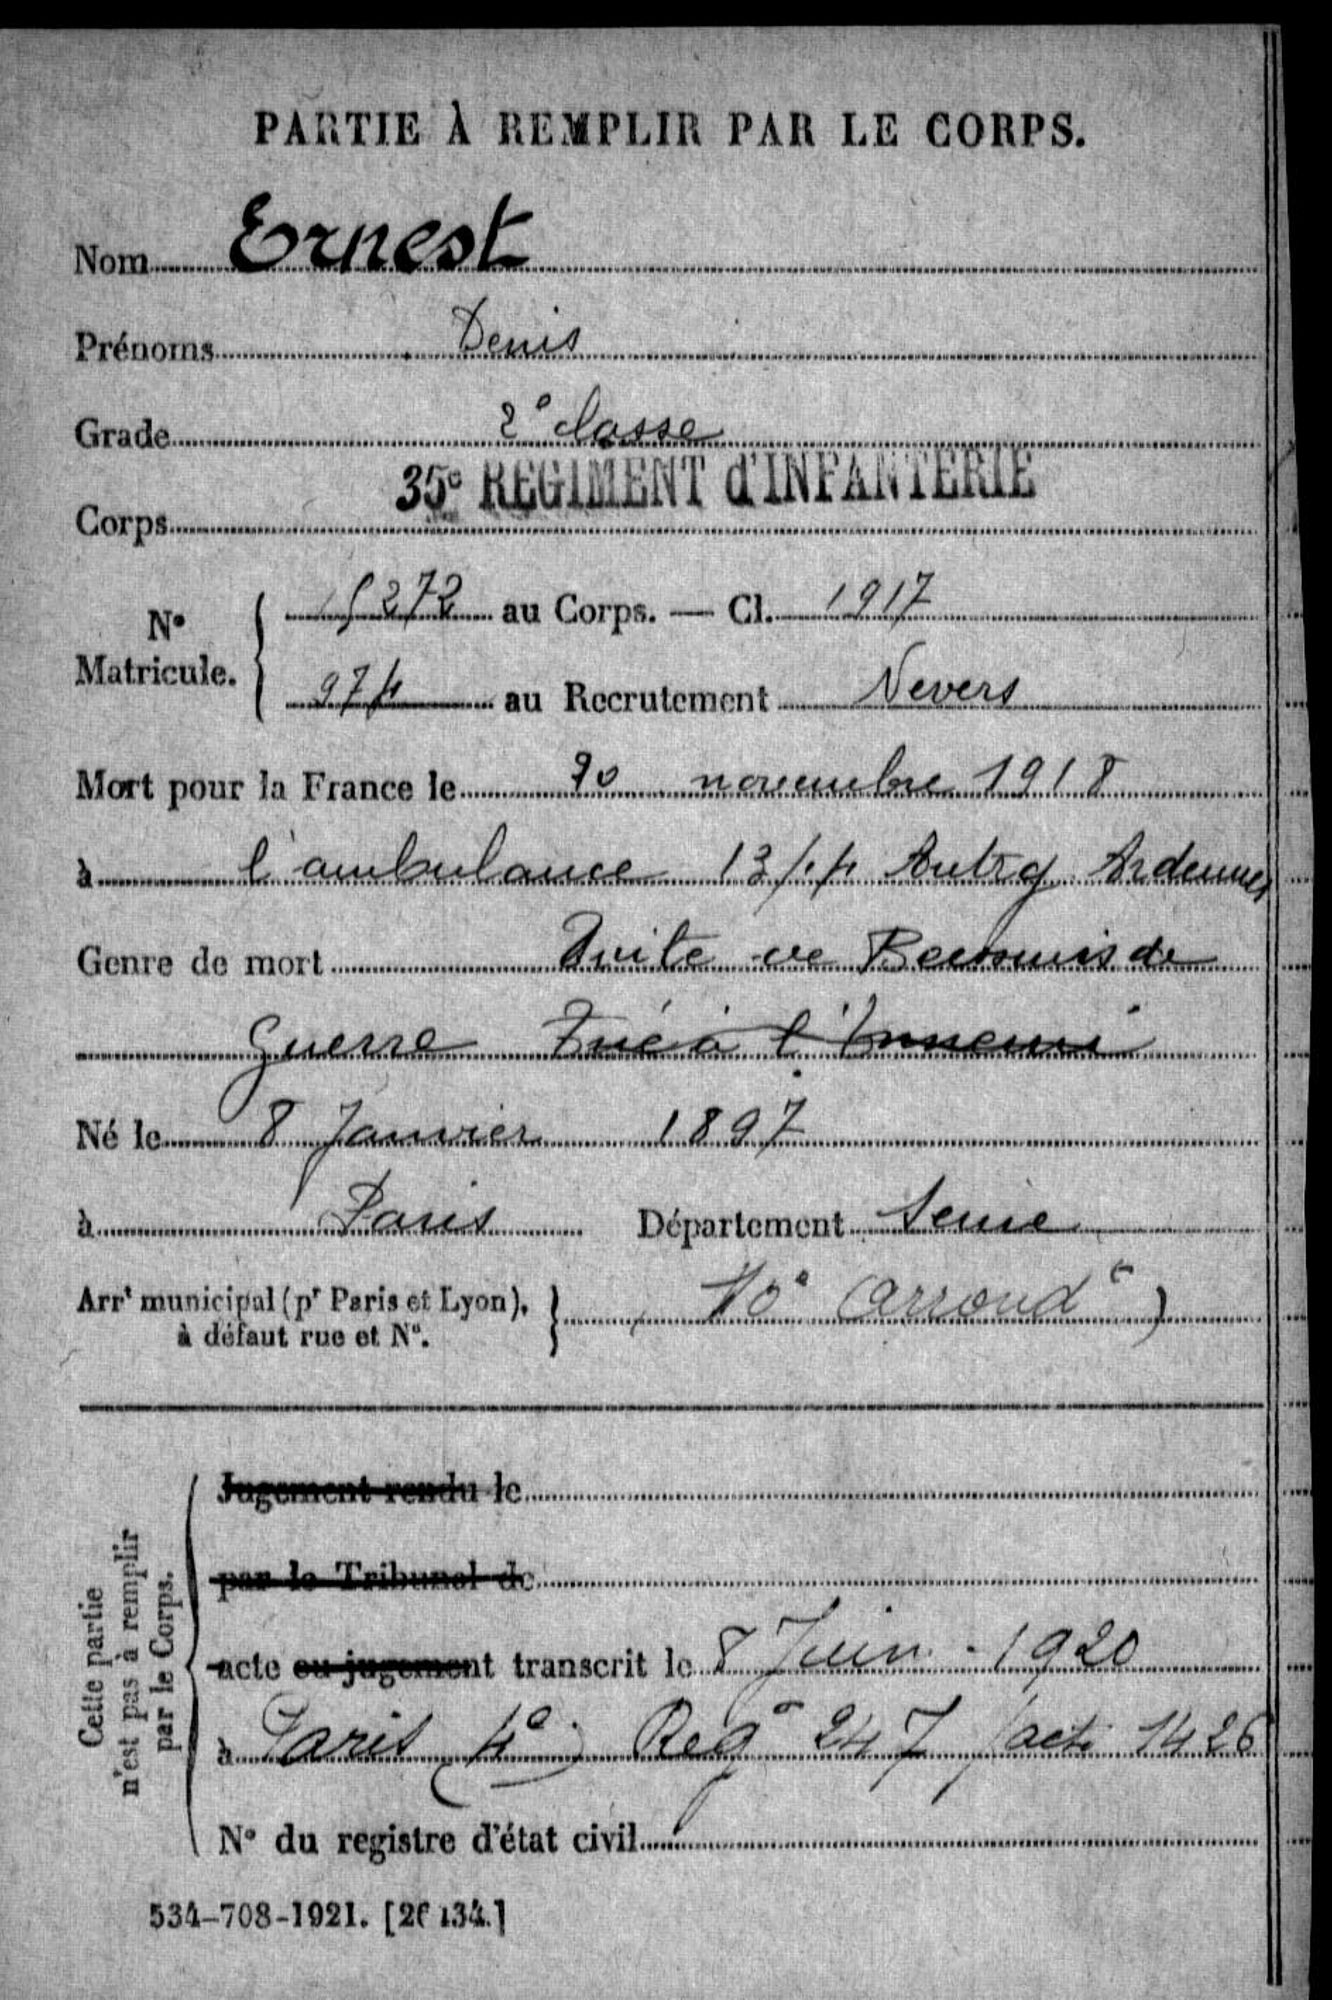 PARTIE À REMPLIR PAR LE CORPS.
Nom Ernest
Prénoms Denis
Grade 2e classe
Corps 35e RÉGIMENT d'INFANTERIE
No Matricule. 15272 au Corps. — Cl. 1917
974 au Recrutement Nevers
Mort pour la France le novembre 1918
à l'ambulance 13/14 Autry Ardennes
Genre de mort Suite de de
Guerre Tué à l'Ennemi
Né le 8 Janvier 1897
à Paris Département Seine
Arrt municipal (pr Paris et Lyon), à défaut rue et No. ( 10e arrondt )
Cette partie n'est pas à remplir par le Corps.
Jugement rendu le
par le Tribunal de
acte ou jugement transcrit le 8 Juin - 1920
à Paris (4e) Rege 247 acte 1426
No du registre d'état civil
534-708-1921. [26134.]